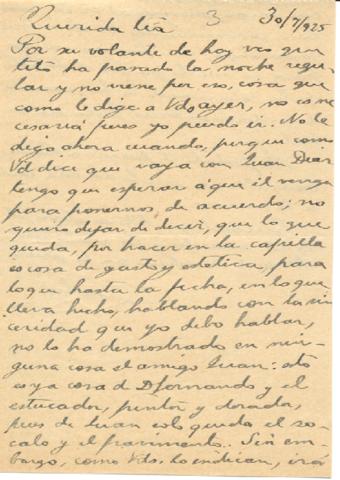 3 30/7/925
Querida tía
Por su volante de hoy veo que
tito ha pasado la noche regu-
lar y no viene por eso, cosa que
como le dige a Vds ayer, no es ne
cesaria pues yo puedo ir. No le
digo ahora cuando, porque como
Vd dice que vaya con Juan
tengo que esperar a que él venga
para ponernos de acuerdo; no
quiero dejar de decir, que lo que
queda, por hacer en la capilla
es cosa de gusto y estetica, para
lo que hasta la fecha, en lo que
lleva hecho, hablando con la sin
ceridad que yo debo hablar,
no lo ha demostrado en nin-
guna cosa el amigo Juan: esto
es ya cosa de D. Fernando y el
estucador, pintor y dorador,
pues de Juan solo queda el zo-
calo y el pavimento. Sin em-
bargo, como Vds. lo indican, irá